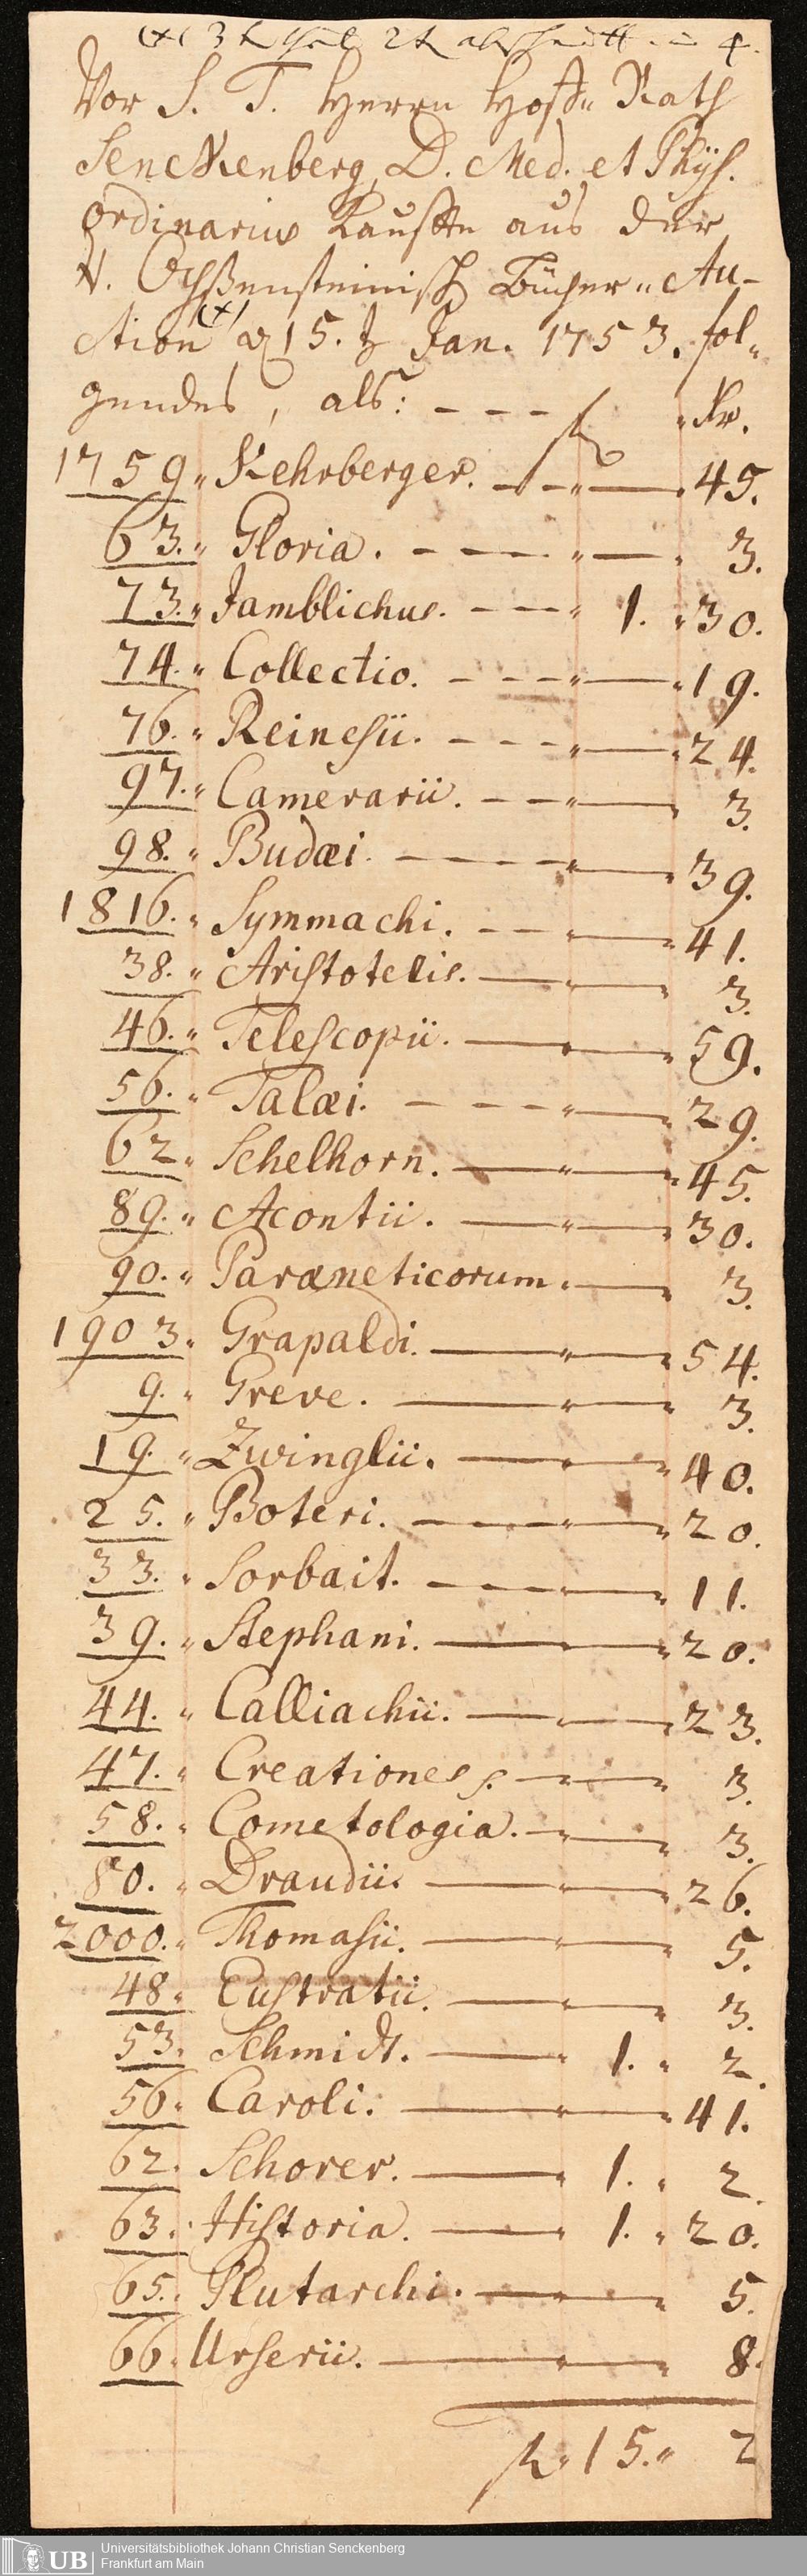 (+) 3t theil 2t abschnitt in 4.
Vor S. T. Herrn Hoff„ Rath
Senckenberg, D. Med. et Phÿs.
Ordinarius Kauffte aus der
v. Ochßensteinisch Bücher„ Au-
ction (+) 15. Jan. 1753. fol„
gendes, als: - - - f „ Kr.
1759„ Kehrberger. - - „ — „ 45.
63.„ Gloria. - - - „ — „ 3.
73.„ Jamblichus. - - - „ 1. „ 30.
74.„ Collectio. - - - „ — „ 19.
76.„ Reinesii. - - - „ — „ 24.
97.„ Camerarii. - - „ — „ 3.
98.„ Budæi. - - - „ — „ 39.
1816.„ Symmachi. - - „ — „ 41.
38.„ Aristotelis. — „ — „ 3.
46.„ Telescopii. — „ — „ 59.
56.„ Talæi. - - - „ — „ 29.
62„ Schelhorn. — „ — „ 45.
89.„ Acontii. — „ — „ 30.
90.„ Paræneticorum. — „ 3.
1903„ Grapaldi. — „ — „ 54.
9.„ Greve. — „ — „ 3.
19.„ Zwinglii. — „ — „ 40.
25.„ Boteri. - - - „ — „ 20.
33.„ Sorbait. - - - „ — „ 11.
39.„ Stephani. — „ — „ 20.
44.„ Calliachii. — „ — „ 23.
47.„ Creationes — „ — „ 3.
58.„ Cometologia. - „ — „ 3.
80.„ Draudii. — „ — „ 26.
2000.„ Thomasii. — „ — „ 5.
48„ Eustratii. — „ — „ 3.
53„ Schmidt. — „ 1. „ 2.
56„ Caroli. — „ — „ 41.
62. Schorer. — „ 1. „ 2.
63. Historia. — „ 1. „ 20.
65. Plutarchi. — „ — „ 5.
66. Urserii. — „ — „ 8.
f „ 15.„ 2
UB
Universitätsbibliothek Johann Christian Senckenberg
Frankfurt am Main